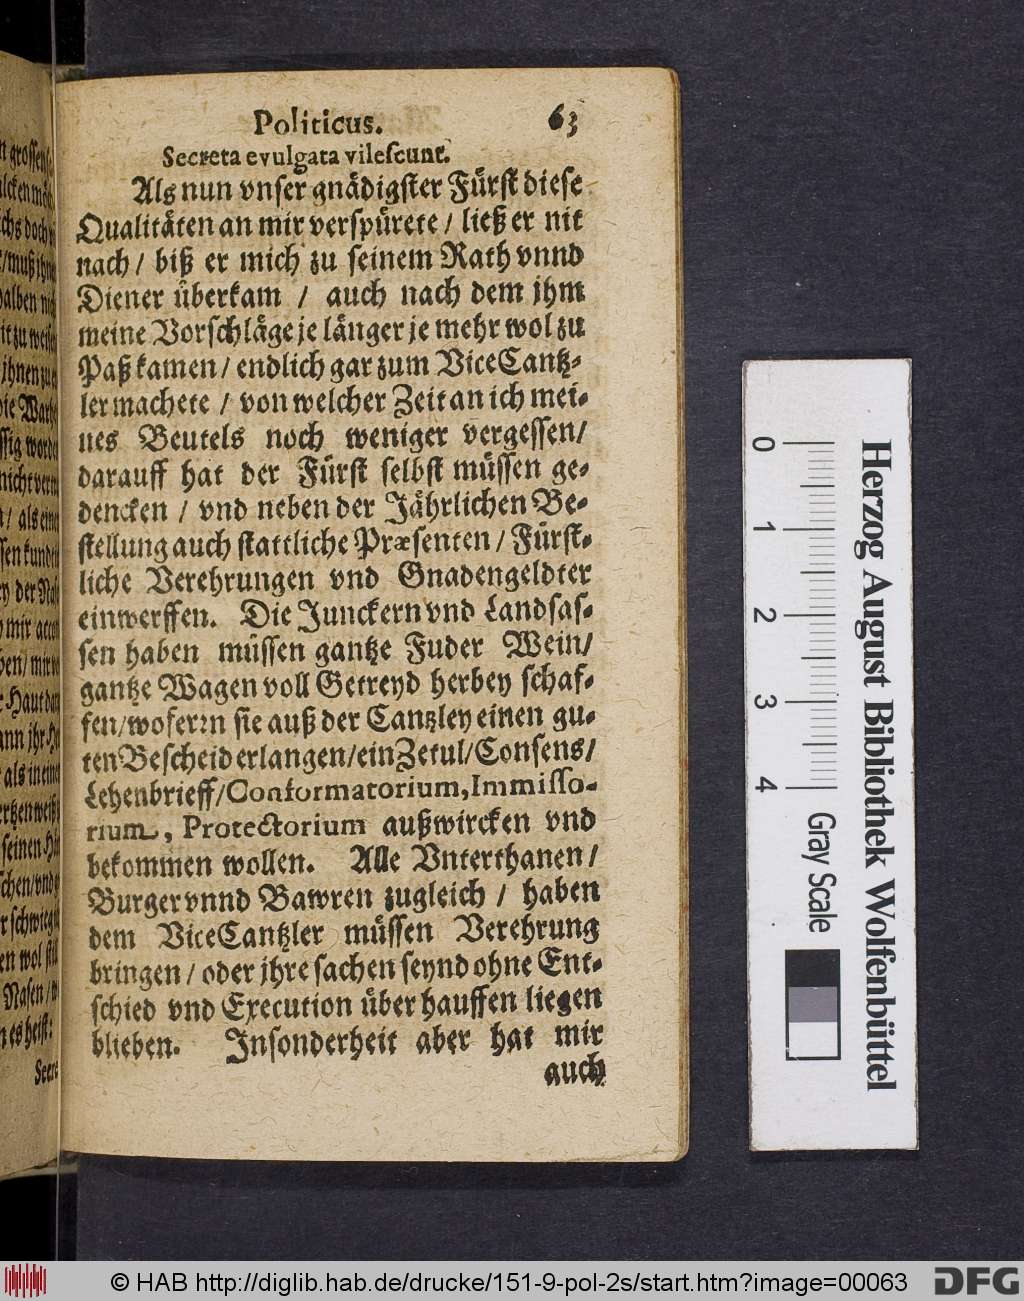 Politicus. 63
Secreta evulgata vilescunt.
Als nun vnser gnädigster Fürst diese
Qualitäten an mir verspürete / ließ er nit
nach / biß er mich zu seinem Rath vnnd
Diener überkam / auch nach dem jhm
meine Vorschläge je länger je mehr wol zu
Paß kamen / endlich gar zum ViceCantz-
ler machete / von welcher Zeit an ich mei-
nes Beutels noch weniger vergessen /
darauff hat der Fürst selbst müssen ge-
dencken / vnd neben der Jährlichen Be-
stellung auch stattliche Præsenten / Fürst-
liche Verehrungen vnd Gnadengeldter
einwerffen. Die Junckern vnd Landsas-
sen haben müssen gantze Fuder Wein /
gantze Wagen voll Getreyd herbey schaf-
fen / wofern sie auß der Cantzley einen gu-
ten Bescheid erlangen / ein Zetul / Consens /
Lehenbrieff / Conformatorium, Immisso-
rium, Protectorium außwircken vnd
bekommen wollen. Alle Vnterthanen /
Burger vnnd Bawren zugleich / haben
dem ViceCantzler müssen Verehrung
bringen / oder jhre sachen seynd ohne Ent-
schied vnd Execution über hauffen liegen
blieben. Insonderheit aber hat mir
auch
0 1 2 3 4
Gray Scale
Herzog August Bibliothek Wolfenbüttel
© HAB http://diglib.hab.de/drucke/151-9-pol-2s/start.htm?image=00063
DFG